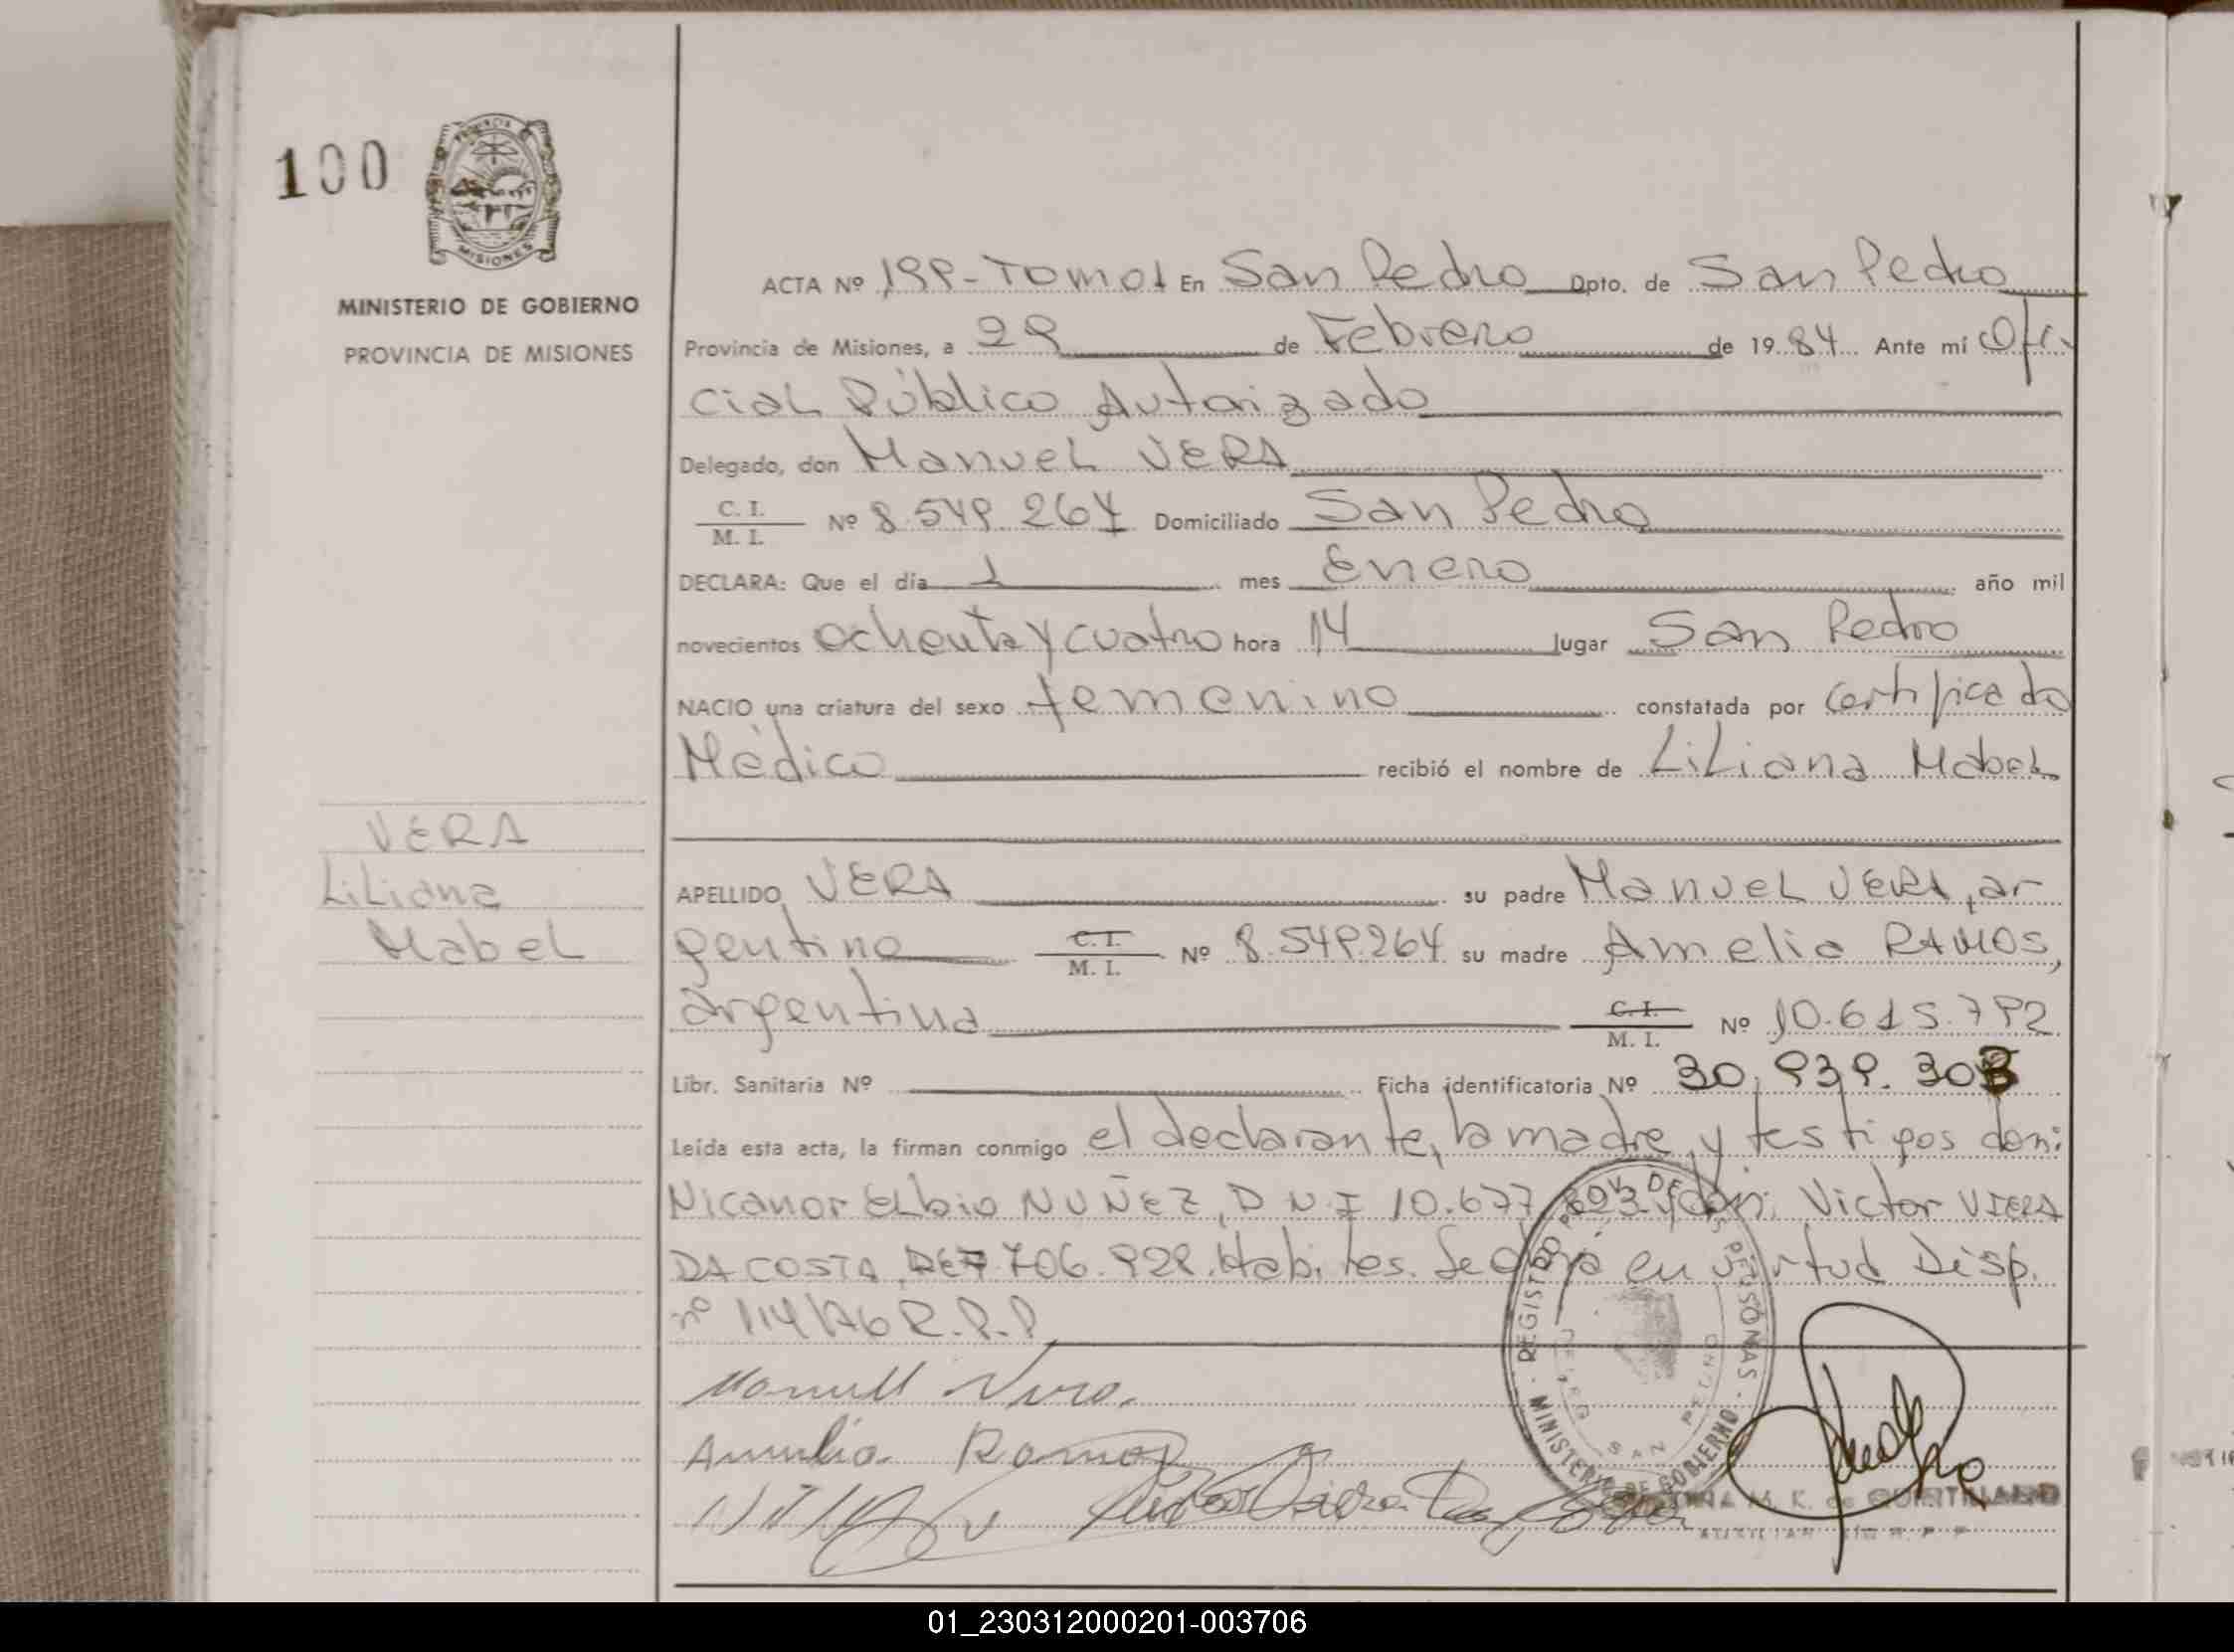 100
PROVINCIA
MISIONES
MINISTERIO DE GOBIERNO
PROVINCIA DE MISIONES
ACTA Nº 199-Tomo1 En San Pedro Dpto. de San Pedro
Provincia de Misiones, a 29 de Febrero de 1984 Ante mí Ofi-
cial Público Autorizado
Delegado, don Manuel VERA
C. I.
M. I. Nº 8.549.264 Domiciliado San Pedro
DECLARA: Que el día 1 mes Enero año mil
novecientos ochenta y cuatro hora 14 lugar San Pedro
NACIO una criatura del sexo femenino constatada por Certificado
Médico recibió el nombre de Liliana Mabel
VERA
Liliana
Mabel
APELLIDO VERA su padre Manuel VERA, ar
gentino C. I.
M. I. Nº 8.549.264 su madre Amelia RAMOS,
argentina C. I.
M. I. Nº 10.615.792
Libr. Sanitaria Nº Ficha identificatoria Nº 30.939.303
Leída esta acta, la firman conmigo el declarante, la madre y testigos don:
Nicanor Elbio NUÑEZ, D N I 10.677.893 y don: Victor VIERA
DA COSTA, 706.929. Habiles. en virtud Disp.
nº 114/76 R.P.P
Manuel Vera
Amelia Ramos
Victor Viera Da Costa
REGISTRO PROV. DE LAS PERSONAS
MINISTERIO DE GOBIERNO
DELEG SAN PEDRO
M. K. de QUINTANA
AUXILIAR R. P. P.
01_230312000201-003706